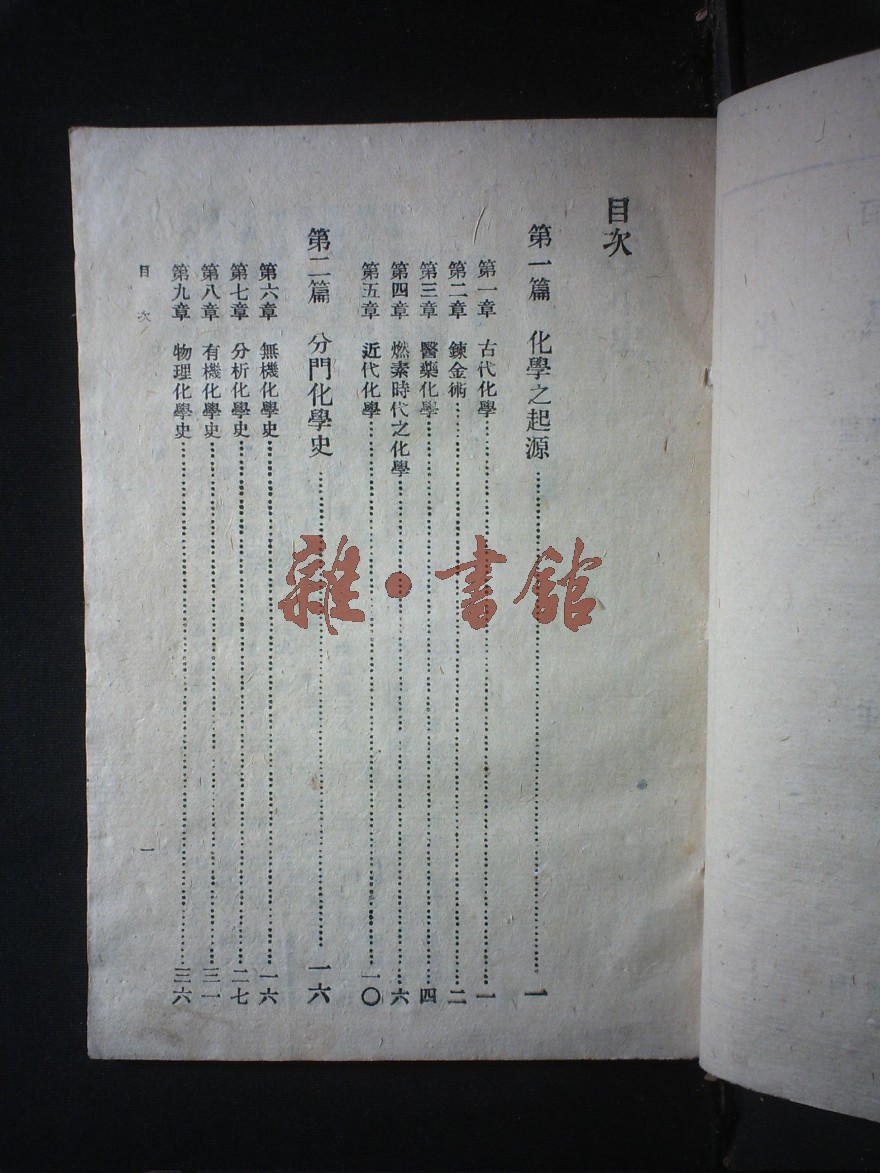 目次
第一篇 化學之起源…………一
第一章 古代化學…………一
第二章 鍊金術…………二
第三章 醫藥化學…………四
第四章 燃素時代之化學…………六
第五章 近代化學…………一〇
第二篇 分門化學史…………一六
第六章 無機化學史…………一六
第七章 分析化學史…………二七
第八章 有機化學史…………三一
第九章 物理化學史…………三六
目次 一
雜·書館